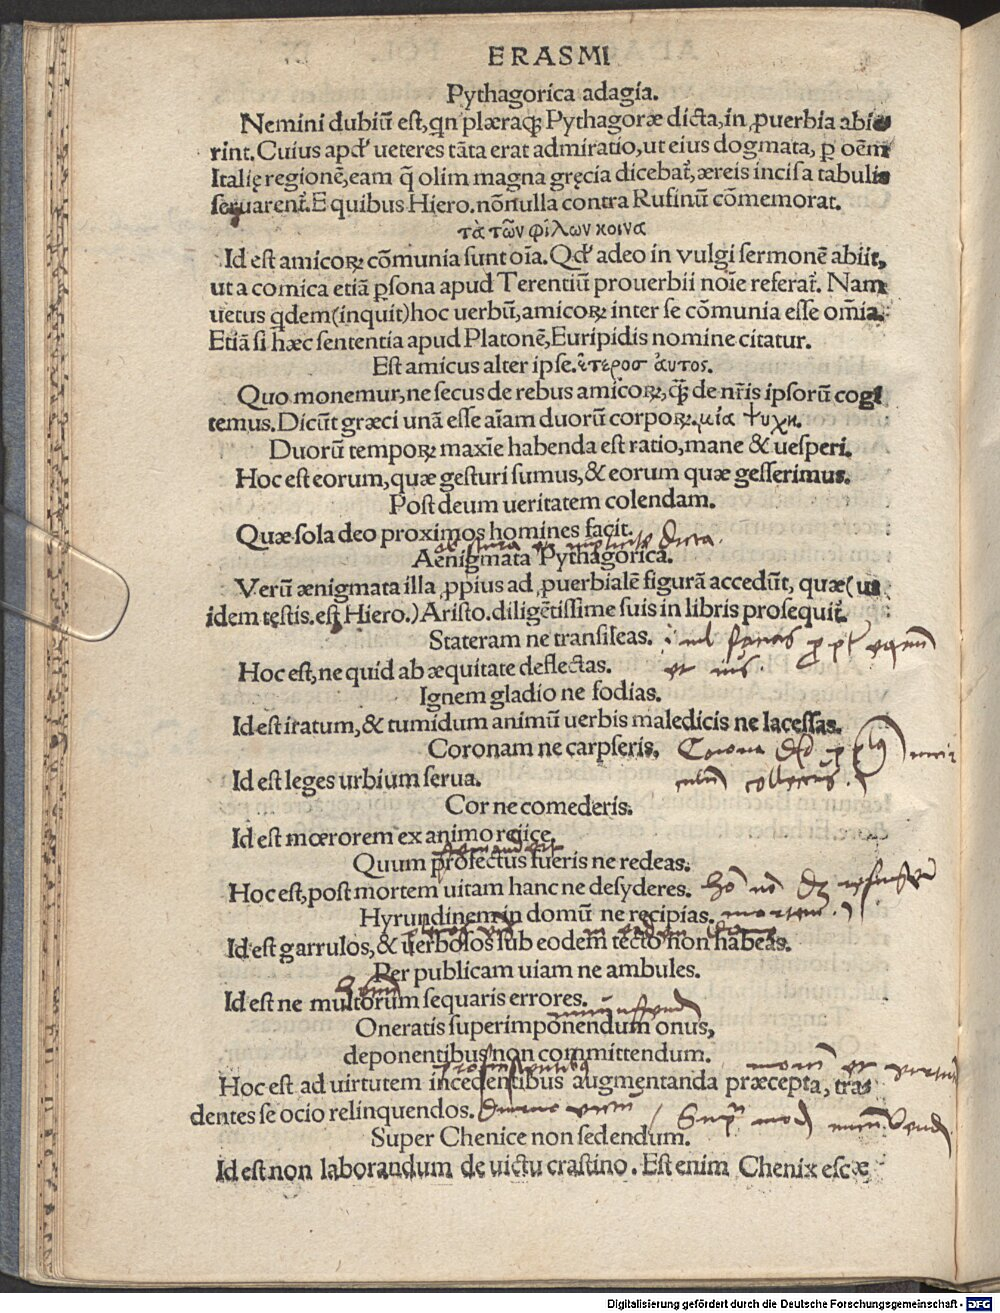 ERASMI
Pythagorica adagia.
Nemini dubiū est, qn plæraq; Pythagoræ dicta, in ꝓuerbia abie
rint. Cuius apđ ueteres tāta erat admiratio, ut eius dogmata, ꝑ oēm
Italię regionē, eam q̄ olim magna gręcia dicebat̄, æreis incisa tabulis
seruarent̄. E quibus Hiero. nōnulla contra Rufinū cōmemorat.
τὰ τῶν φίλων κοινα
Id est amicoꝝ cōmunia sunt oīa. Qđ adeo in vulgi sermonē abiit,
ut a comica etiā ꝑsona apud Terentiū prouerbii noīe referat̄. Nam
uetus qdem (inquit) hoc uerbū, amicoꝝ inter se cōmunia esse om̄ia.
Etiā si hæc sententia apud Platonē, Euripidis nomine citatur.
Est amicus alter ipse. ἕτεροσ ἀυτος.
Quo monemur, ne secus de rebus amicoꝝ, q̄ꝫ de nr̄is ipsorū cogi
temus. Dicūt græci unā esse aīam duorū corpoꝝ. μία ψυχη.
Duorū tempoꝝ maxīe habenda est ratio, mane & uesperi.
Hoc est eorum, quæ gesturi sumus, & eorum quæ gesserimus.
Post deum ueritatem colendam.
Quæ sola deo proximos homines facit.
obscura et dicta.
Aenigmata Pythagorica.
Verū ænigmata illa ꝓppius ad ꝓuerbialē figurā accedūt, quæ (ut
idem testis. est Hiero.) Aristo. diligētissime suis in libris prosequit̄.
Stateram ne transileas.
Hoc est, ne quid ab æquitate deflectas. et ius
Ignem gladio ne fodias.
Id est iratum, & tumidum animū uerbis maledicis ne lacessas.
Coronam ne carpseris. Corona
Id est leges urbium serua.
Cor ne comederis.
Id est mœrorem ex animo reiice.
Quum profectus fueris ne redeas.
Hoc est, post mortem uitam hanc ne desyderes.
Hyrundinem in domū ne recipias. mortem
Id est garrulos, & uerbosos sub eodem tecto non habeas.
Per publicam uiam ne ambules.
Id est ne multorum sequaris errores.
Oneratis superimponendum onus,
deponentibus non committendum.
Hoc est ad uirtutem incedentibus augmentanda præcepta, tra
dentes se ocio relinquendos.
Super Chenice non sedendum.
Id est non laborandum de uictu crastino. Est enim Chenix escæ
Digitalisierung gefördert durch die Deutsche Forschungsgemeinschaft - DFG